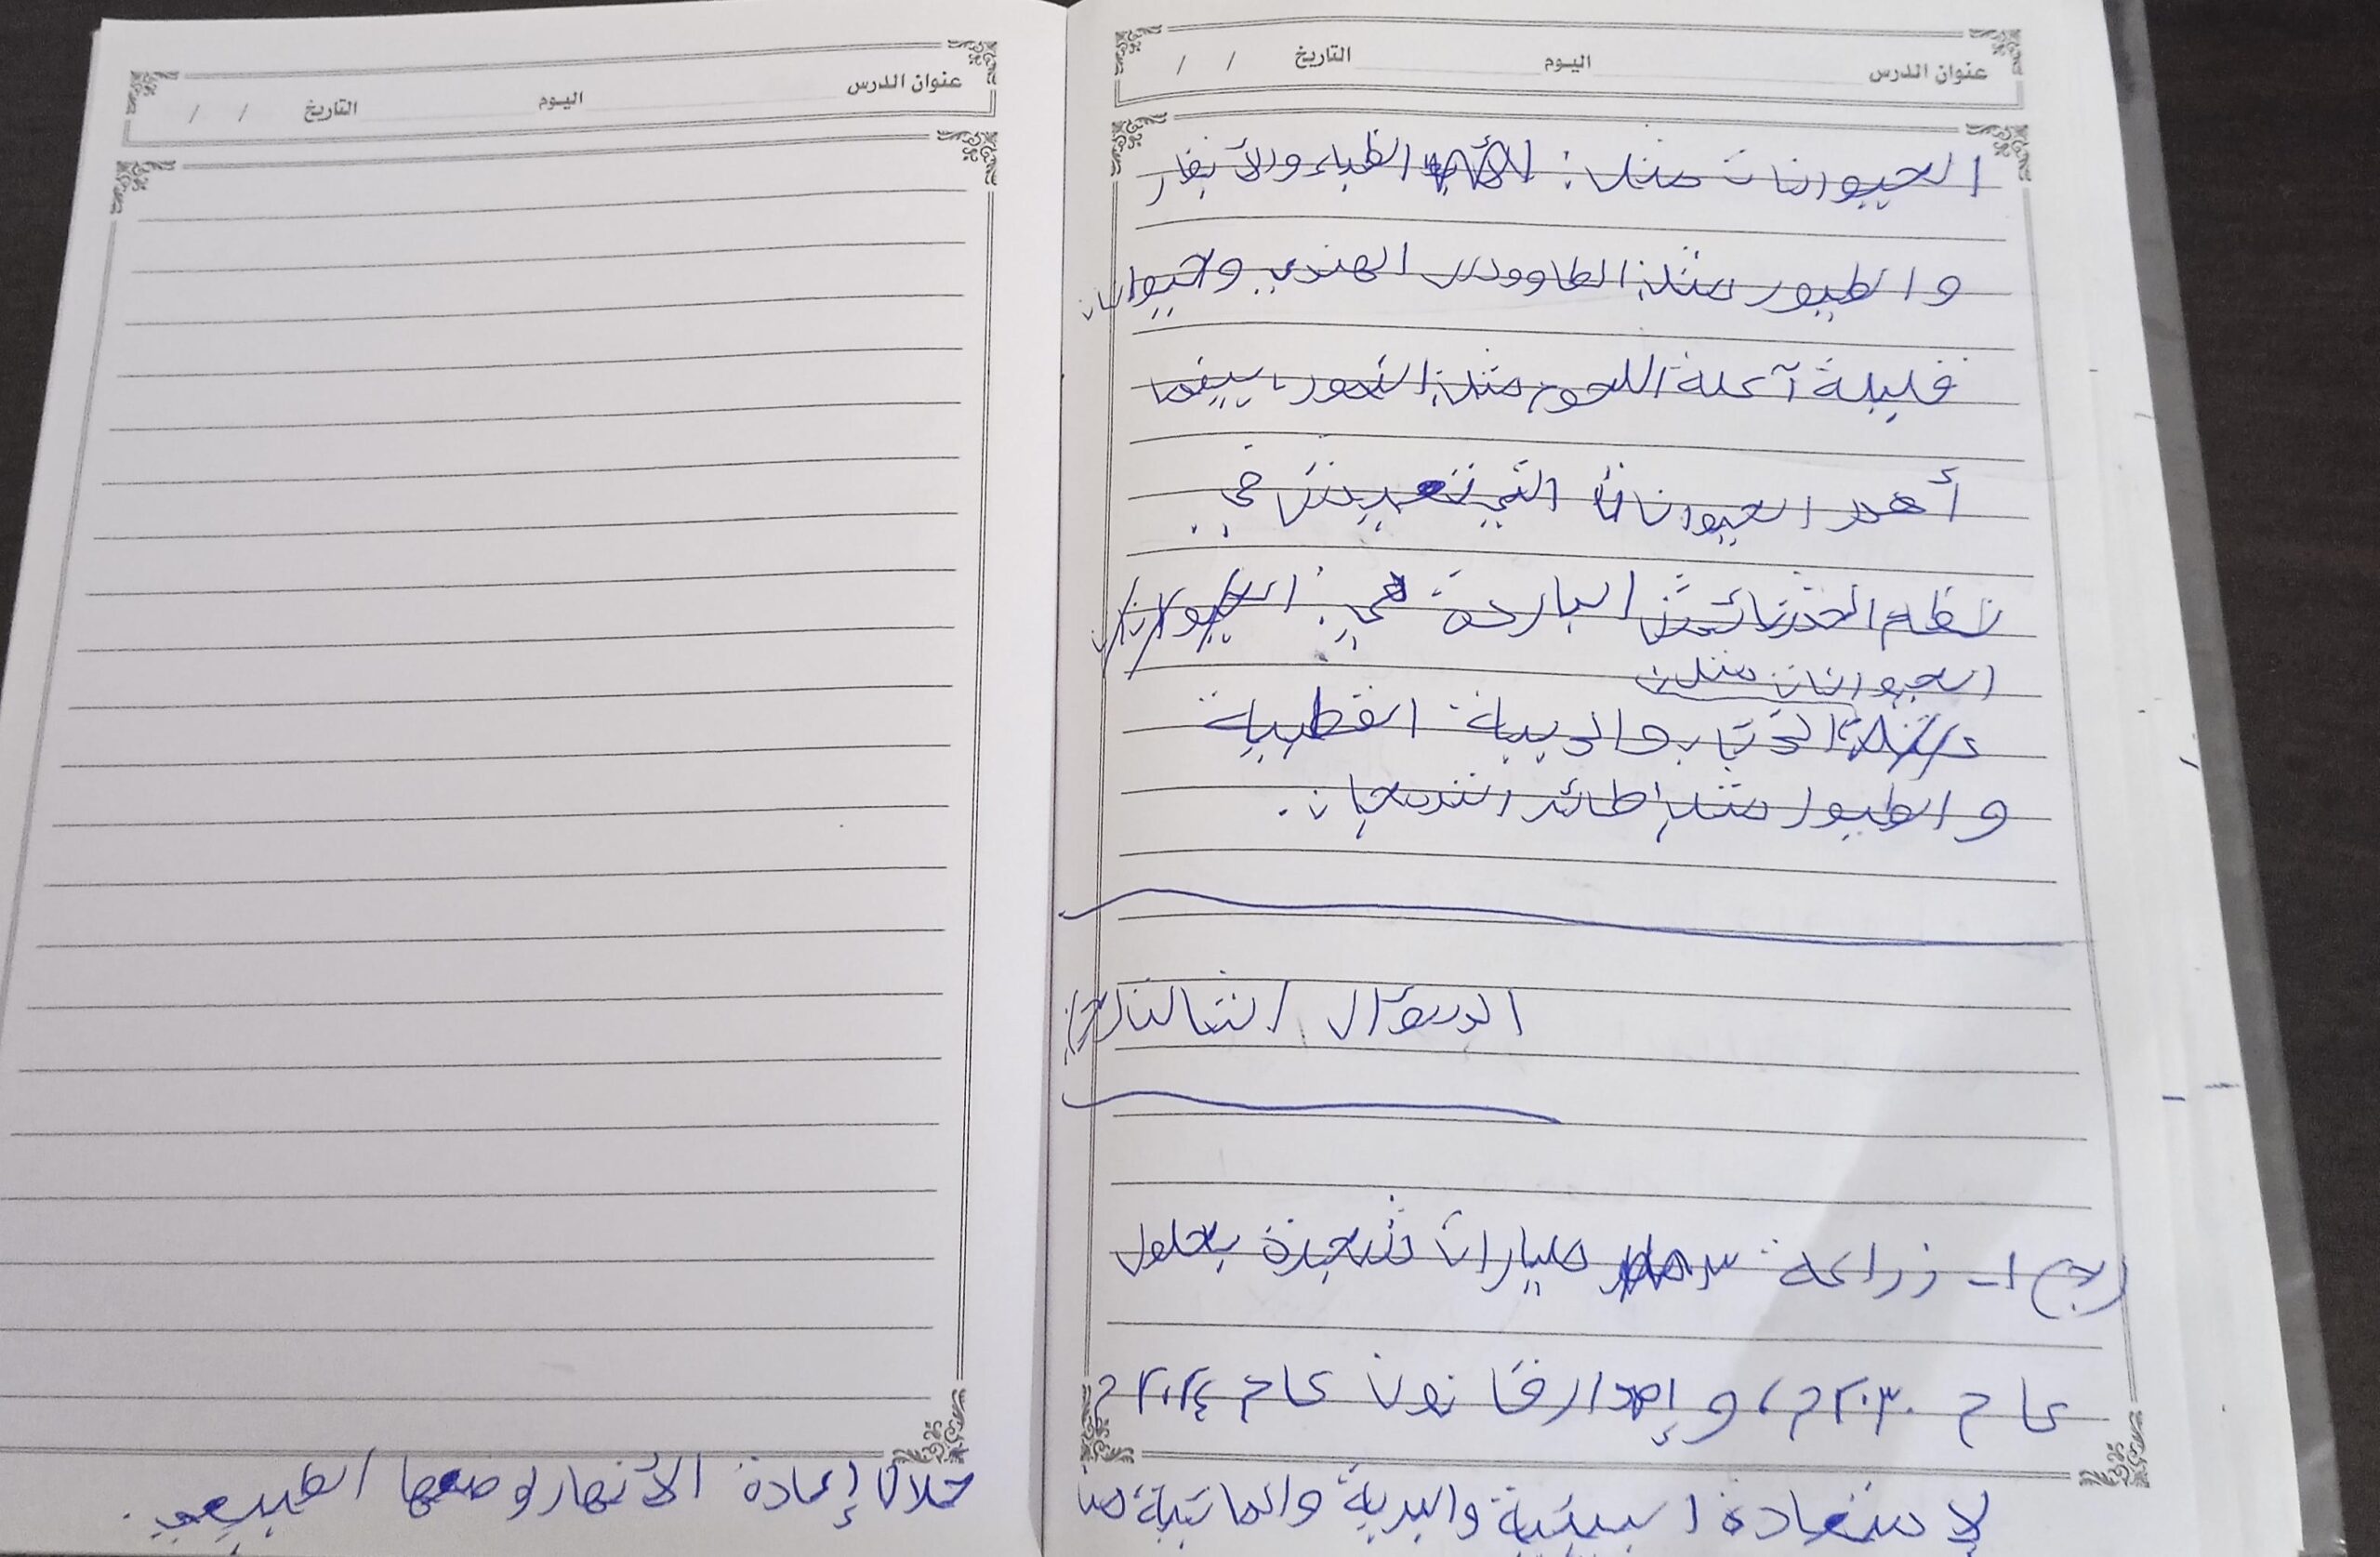 عنوان الدرس اليوم التاريخ / /
الحيوانات مثل: الظباء والأبقار
والطيور مثل: الطاووس الهندي وحيوانات
قليلة آكلة اللحوم مثل: النمور، بينما
أهم الحيوانات التي تعيش في
نظم الحشائش الباردة هي: الحيوانات
الحيوانات مثل:
الذئاب والدببة القطبية
والطيور مثل طائر الشبحان.
السؤال الثالث
(ج) ١ـ زراعة ٣ مليارات شجرة بحلول
عام ٢٠٣٠م، وإصدار قانون عام ٢٠٢٤م
لإستعادة البيئية والبرية والمائية، من
عنوان الدرس اليوم التاريخ / /
خلال إعادة الأنهار لوضعها الطبيعي.